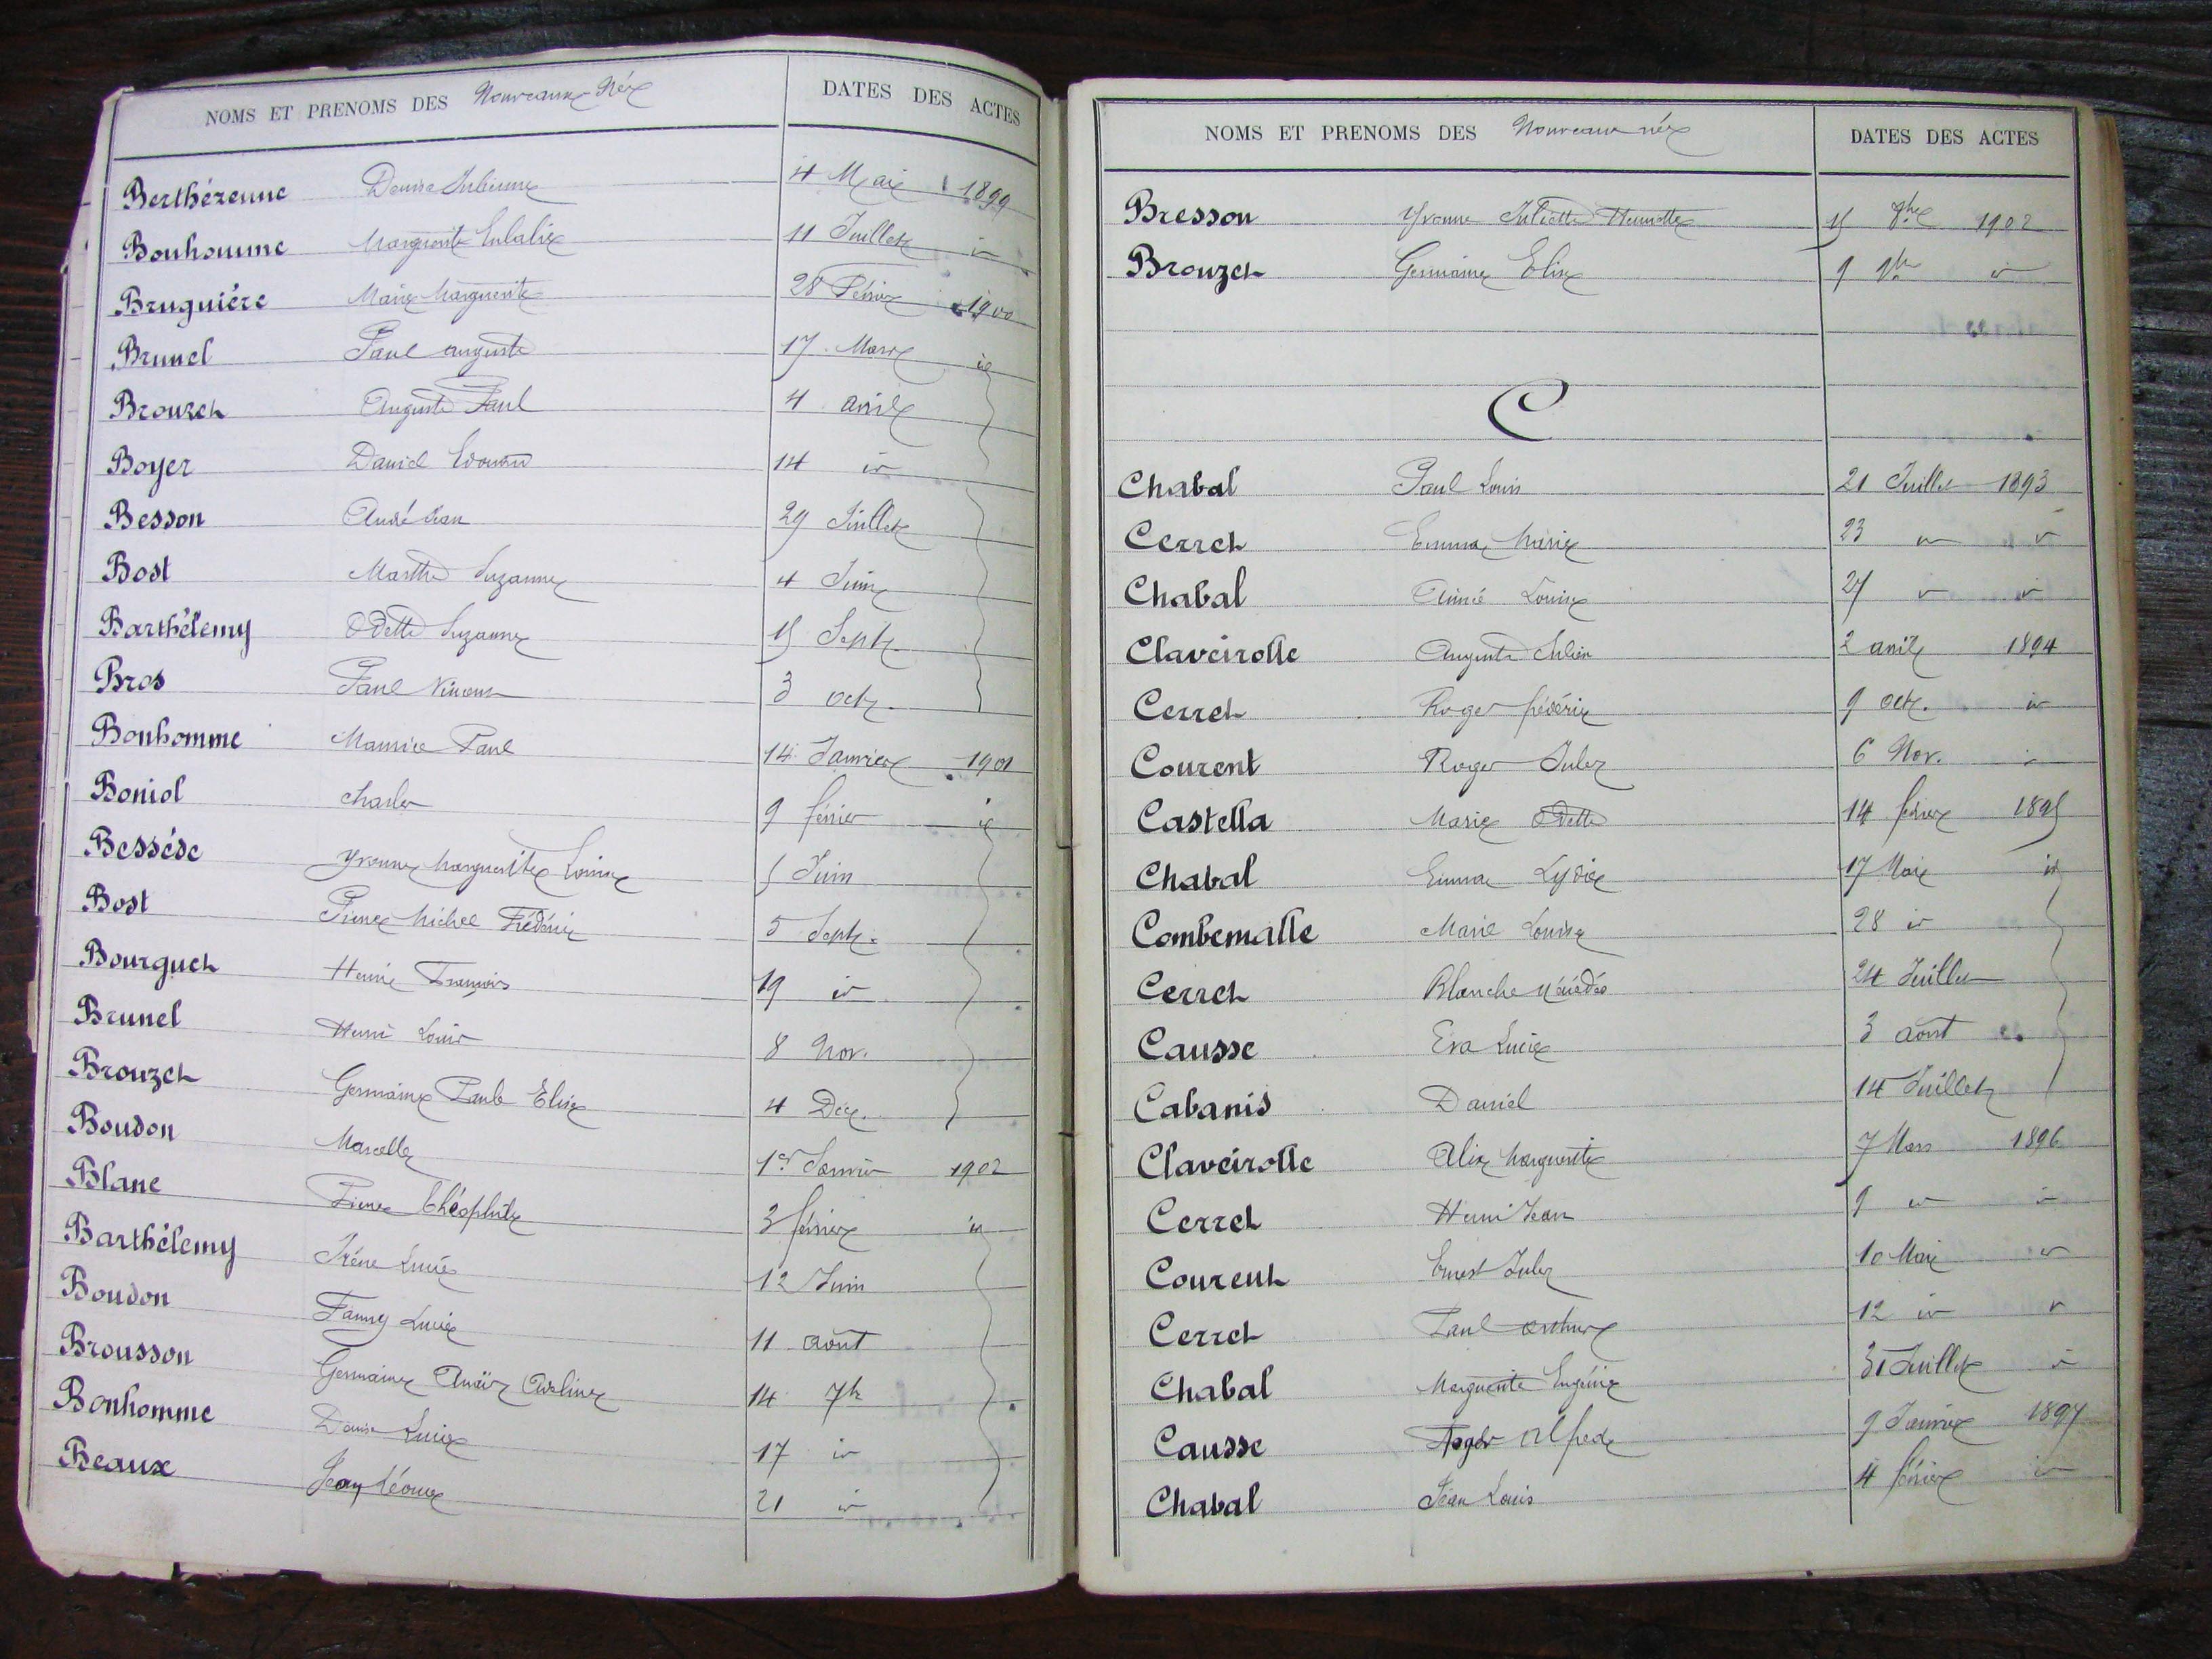 NOMS ET PRENOMS DES Nouveaux Nés DATES DES ACTES
Berthézenne Denise Julienne 4 Mai 1899
Bonhomme Marguerite Eulalie 11 Juillet id
Bruguiére Marie Marguerite 28 Février 1900
Brunel Paul Auguste 17 Mars id
Brouzet Auguste Paul 4 avril
Boyer Daniel Edouard 14 id
Besson André Jean 29 Juillet
Bost Marthe Suzanne 4 Juin
Barthélemy Odette Suzanne 15 Septe.
Bros Paul Vincent 3 oct.
Bonhomme Maurice Paul 14 Janvier 1901
Boniol Charles 9 février id
Besséde Yvonne Marguerite Louise 5 Juin
Bost Pierre Michel Frédéric 5 Sept.
Bourguet Henri François 19 id
Brunel Henri Louis 8 Nov.
Brouzet Germaine Paule Elise 4 Déc.
Boudon Marcelle 1er Janvier 1902
Blanc Pierre Théophile 3 février id
Barthélemy Iréne Lucie 12 Juin
Boudon Fanny Lucie 11 août
Brousson Germaine Anaïs Adeline 14 7bre
Bonhomme Denise Lucie 17 id
Beaux Jean 21 id
NOMS ET PRENOMS DES Nouveaux nés DATES DES ACTES
Bresson Yvonne Juliette Henriette 15 1902
Brouzet Germaine Elise 9 9bre id
C
Chabal Paul Louis 21 Juillet 1893
Cerret Emma Marie 23 id id
Chabal Aimé Louis 27 id id
Claveirolle Auguste Julien 2 avril 1894
Cerret Roger frédéric 9 oct. id
Courent Roger Jules 6 Nov. id
Castella Marie Odette 14 février 1895
Chabal Emma Lydie 17 Mai id
Combemalle Marie Louise 28 id
Cerret Blanche 24 Juillet
Causse Eva Lucie 3 août
Cabanis Daniel 14 Juillet
Claveirolle Alix Marguerite 7 Mars 1896
Cerret Henri Jean 9 id id
Courent Ernest Jules 10 Mai id
Cerret Paul Arthur 12 id id
Chabal Marguerite Eugénie 31 Juillet id
Causse Roger Alfred 9 Janvier 1897
Chabal Jean Louis 4 février id